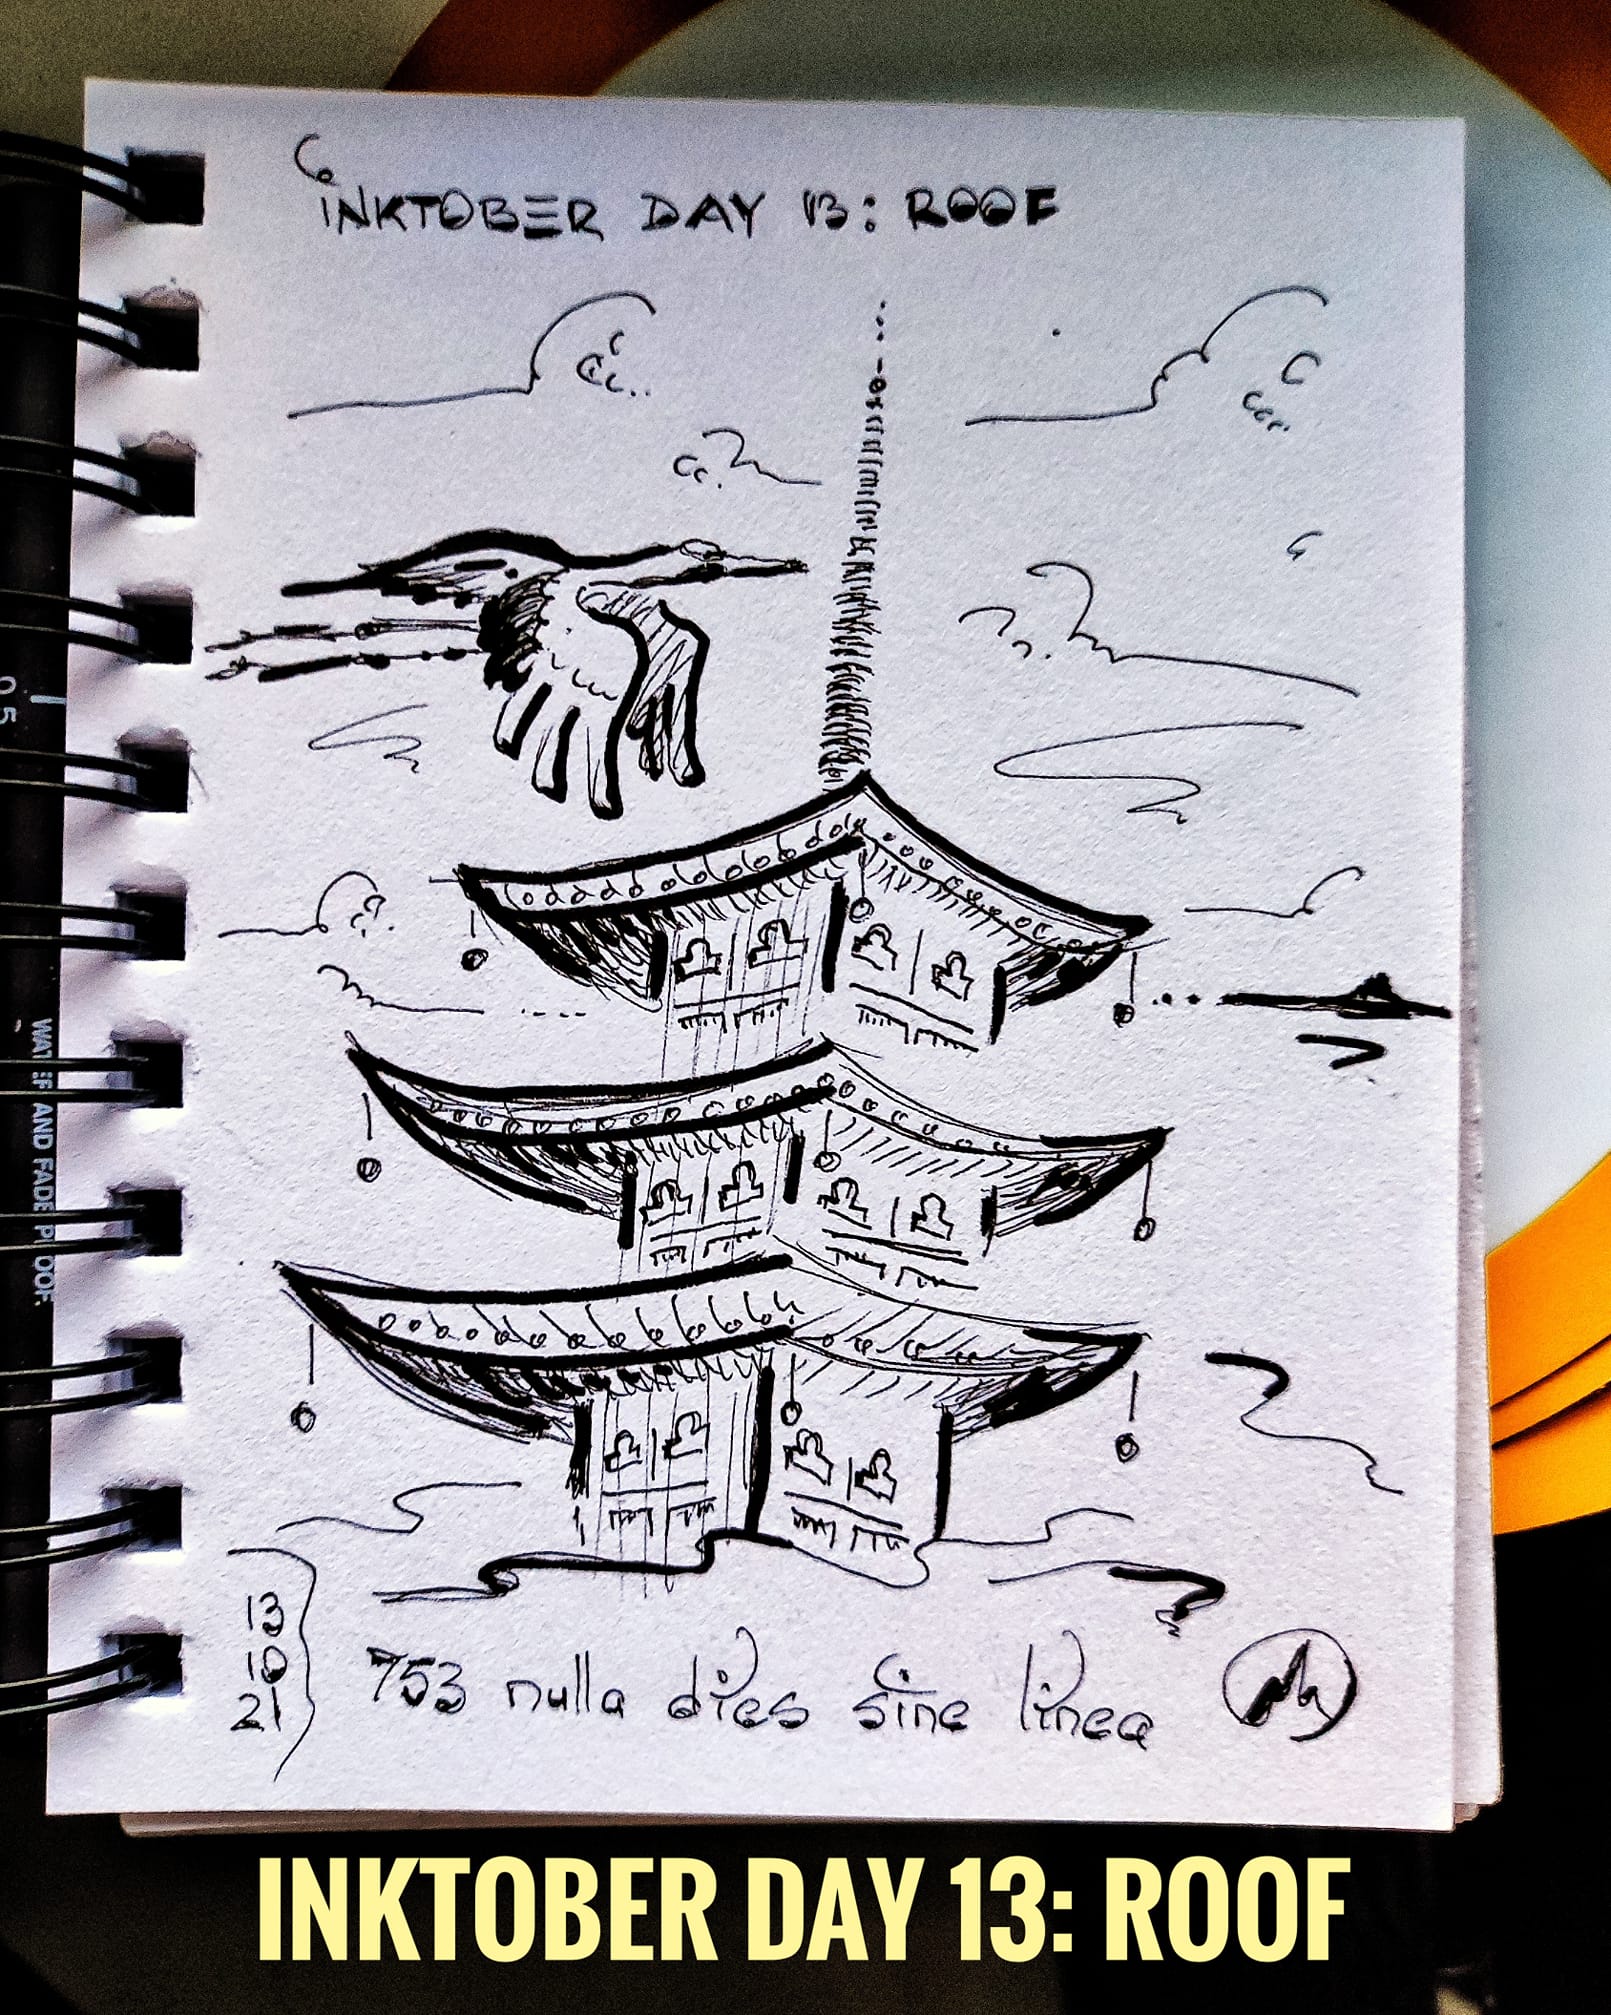 INKTOBER DAY 13: ROOF
0.5
WATER AND FADE PROOF.
13
10
21
753 nulla dies sine linea
INKTOBER DAY 13: ROOF